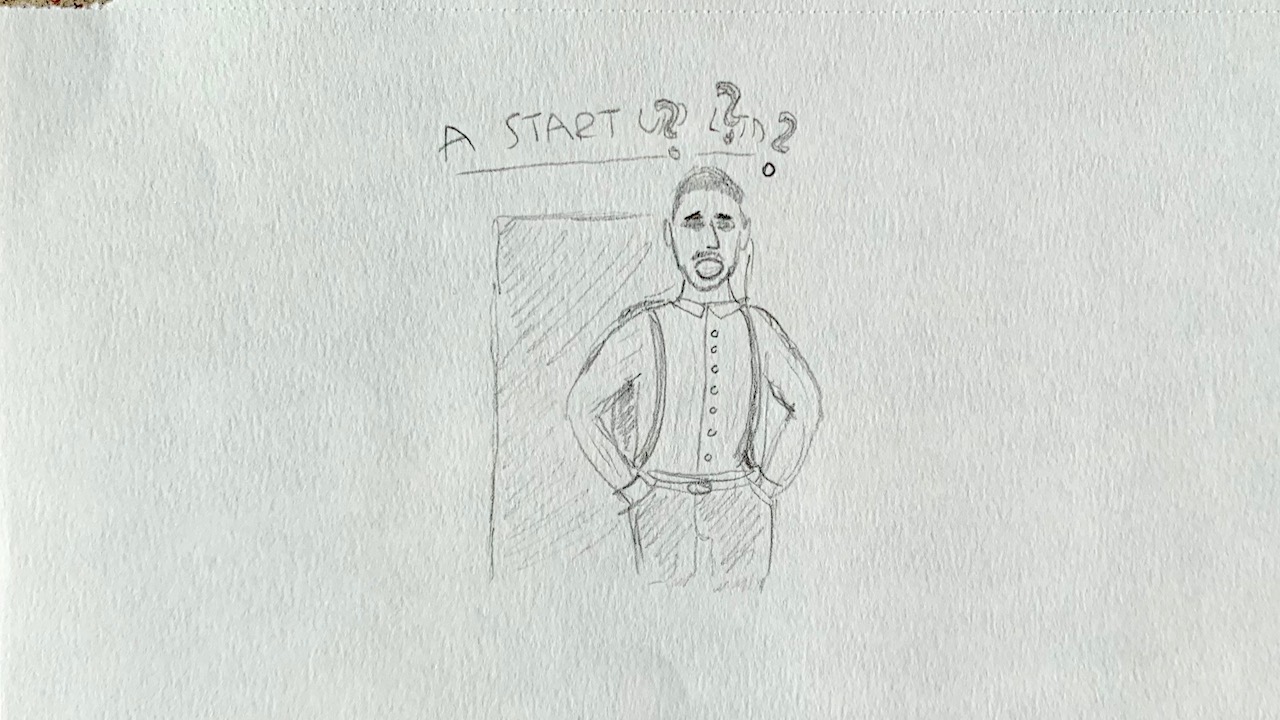 A START UP LTD
???